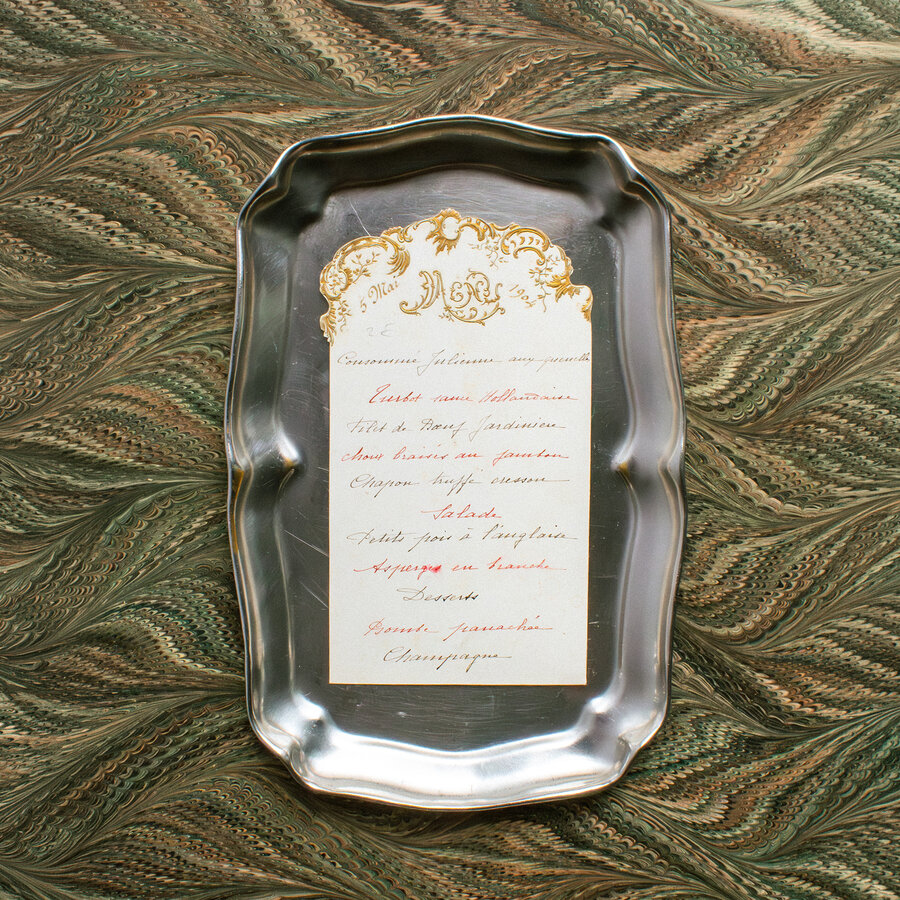 5 Mai MENU 190
Consomme Julienne aux quenelles
Turbot sauce Hollandaise
Filet de Bœuf Jardiniere
Choux braisés au jambon
Chapon truffé cresson
Salade
Petits pois à l'anglaise
Asperges en branche
Desserts
Bombe panachée
Champagne